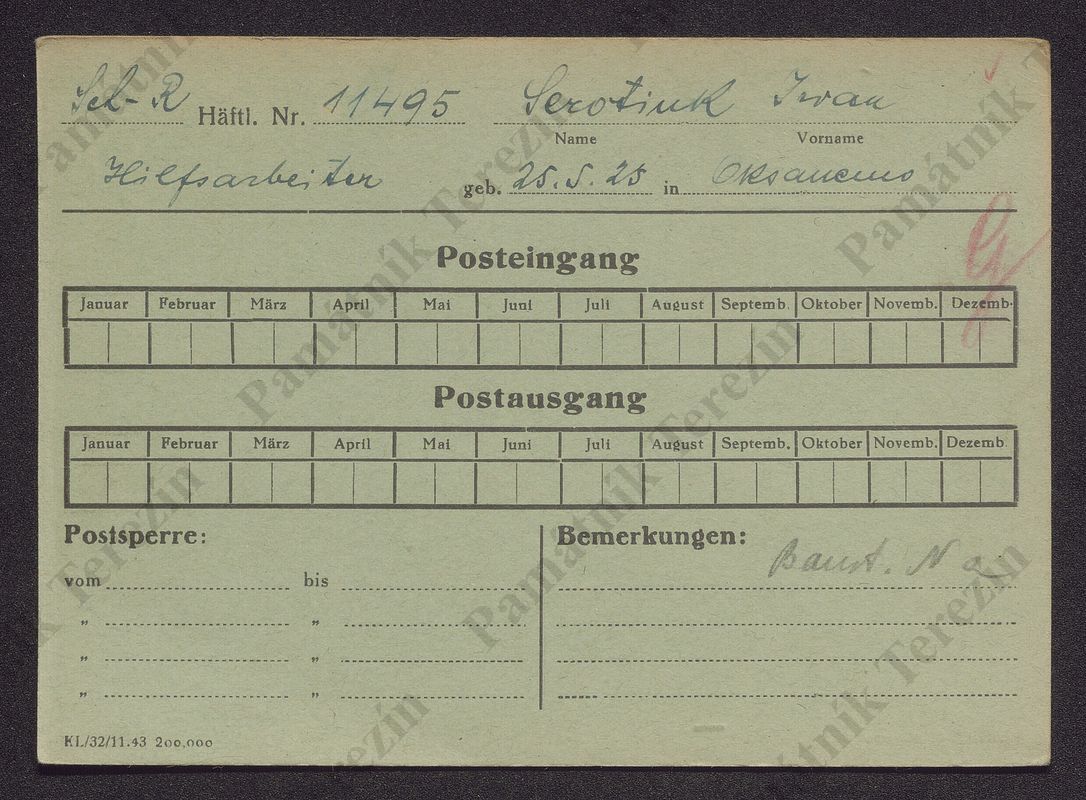 Sch-R Häftl. Nr. 11495 Serotiuk Iwan
Name Vorname
Hilfsarbeiter geb. 25.5.25 in
Posteingang
Januar Februar März April Mai Juni Juli August Septemb. Oktober Novemb. Dezemb.
Postausgang
Januar Februar März April Mai Juni Juli August Septemb. Oktober Novemb. Dezemb.
Postsperre: Bemerkungen:
vom bis
" "
" "
" "
KL/32/11.43 200,000
Památník Terezín